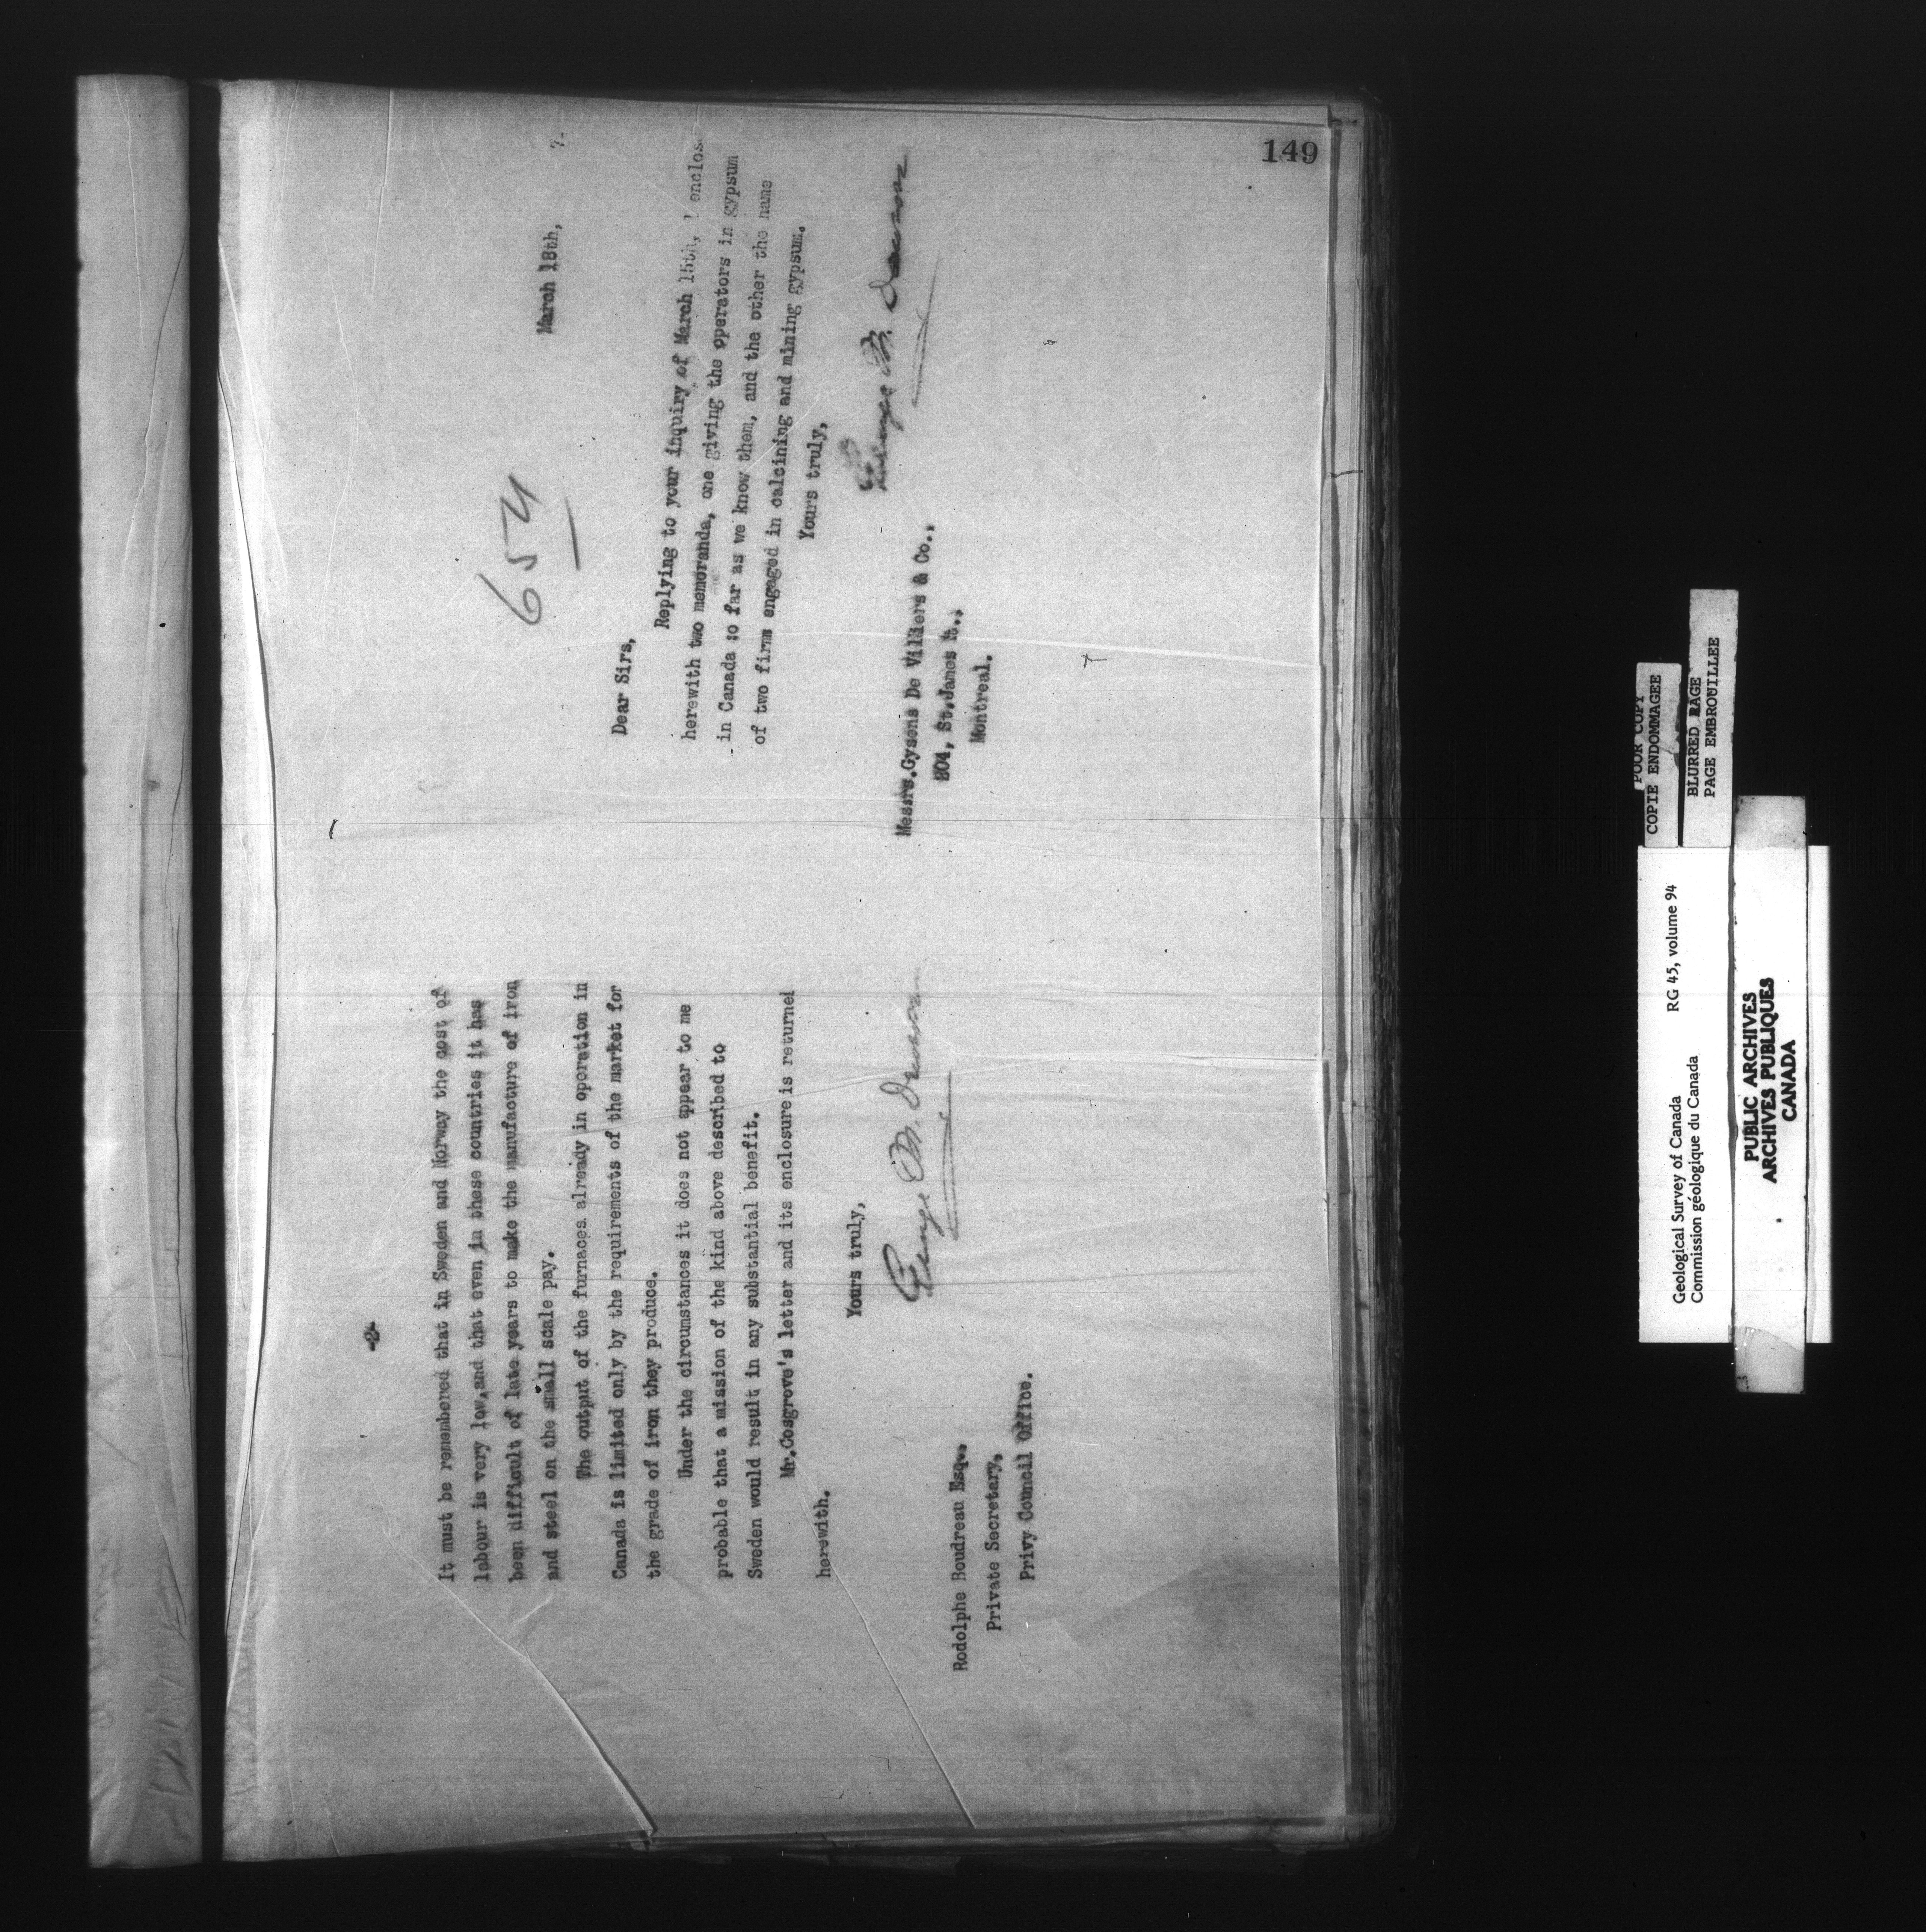 149
-2-
It must be remembered that in Sweden and Norway the cost of
labour is very low, and that even in these countries it has
been difficult of late years to make the manufacture of iron
and steel on the small scale pay.
The output of the furnaces already in operation in
Canada is limited only by the requirements of the market for
the grade of iron they produce.
Under the circumstances it does not appear to me
probable that a mission of the kind above described to
Sweden would result in any substantial benefit.
Mr.Cosgrove's letter and its enclosure is returned
herewith.
Yours truly,
George M. Dawson
Rodolphe Boudreau Esq.,
Private Secretary,
Privy Council Office.
654
March 18th, 7.
Dear Sirs,
Replying to your inquiry of March 15th, I enclose
herewith two memoranda, one giving the operators in gypsum
in Canada so far as we know them, and the other the name
of two firms engaged in calcining and mining gypsum.
Yours truly,
George M. Dawson
Messrs.Gysens De Villiers & Co.,
804, St.James St.,
Montreal.
POOR COPY
COPIE ENDOMMAGEE
BLURRED PAGE
PAGE EMBROUILLEE
Geological Survey of Canada RG 45, volume 94
Commission géologique du Canada
PUBLIC ARCHIVES
ARCHIVES PUBLIQUES
CANADA